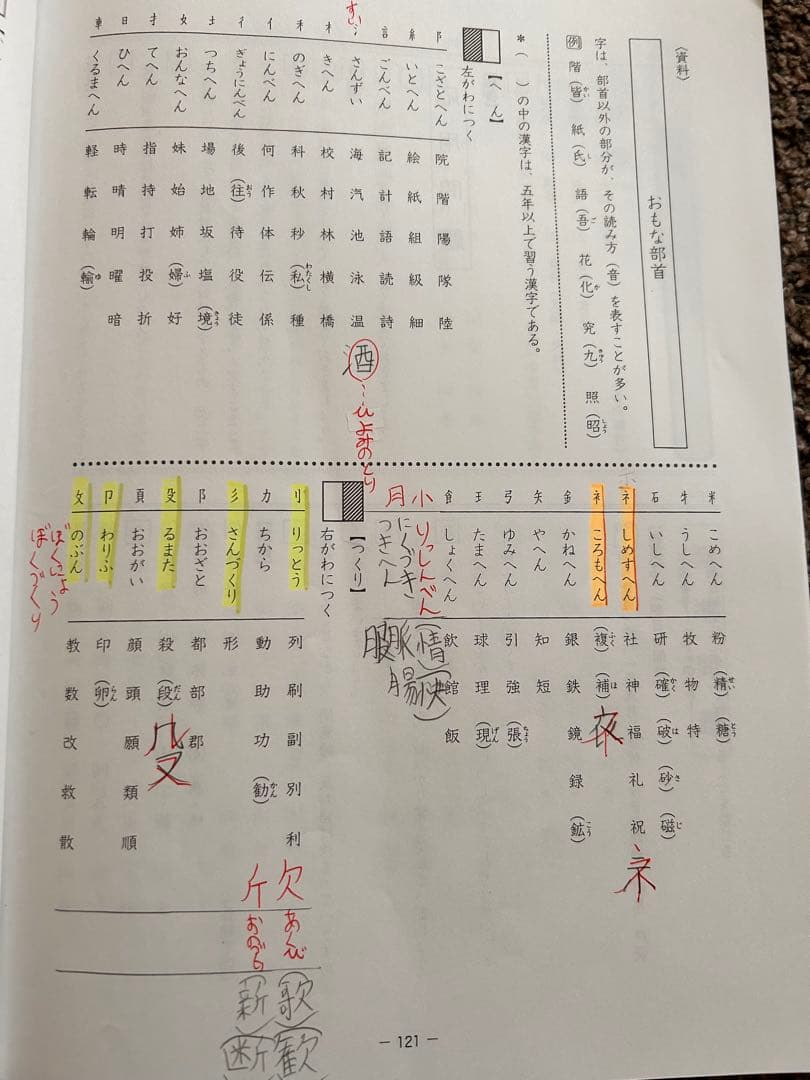 〈資料〉
おもな部首
字は、部首以外の部分が、その読み方（音）を表すことが多い。
例 階（皆かい） 紙（氏し） 語（吾ご） 花（化か） 究（九きゅう） 照（昭しょう）
＊（　）の中の漢字は、五年以上で習う漢字である。
【へん】
左がわにつく
阝 こざとへん 院 階 陽 隊 陸
糹 いとへん 絵 紙 組 級 細
言 ごんべん 記 計 語 読 詩
すい
氵 さんずい 海 汽 池 泳 温 酒 …ひよみのとり
木 きへん 校 村 林 横 橋
禾 のぎへん 科 秋 秒 （私わたくし） 種
亻 にんべん 何 作 体 伝 係
彳 ぎょうにんべん 後 （往おう） 待 役 徒
土 つちへん 場 地 坂 塩 （境きょう）
女 おんなへん 妹 始 姉 （婦ふ） 好
扌 てへん 指 持 打 投 折
日 ひへん 時 晴 明 曜 暗
車 くるまへん 軽 転 輪 （輸ゆ）
米 こめへん 粉 （精せい） （糖とう）
牜 うしへん 牧 物 特
石 いしへん 研 （確かく） （破は） （砂さ） （磁じ）
礻 しめすへん 社 神 福 礼 祝 ネ
衤 ころもへん （複ふく） （補ほ） 夜
金 かねへん 銀 鉄 鏡 録 （鉱こう）
矢 やへん 知 短
弓 ゆみへん 引 強 （張ちょう）
王 たまへん 球 理 （現げん）
飠 しょくへん 飲 館 飯
小 りっしんべん （情 快）
月 にくづき つきへん 脈 腸 服
【つくり】
右がわにつく
刂 りっとう 列 刷 副 別 利
力 ちから 動 助 功 （勧かん）
彡 さんづくり 形
阝 おおざと 都 部 郡
殳 るまた 殺 （段だん） 殳
頁 おおがい 顔 頭 願 類 順
卩 わりふ 印 （卵らん）
攵 のぶん 教 数 改 救 散
ぼくにょう
ぼくづくり
欠 あくび （歌） （歓）
斤 おのづくり （新） （断）
― 121 ―